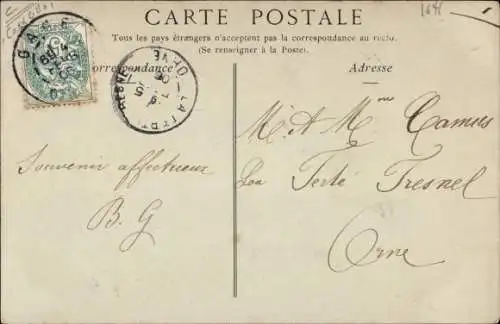 1646
CARTE POSTALE
Tous les pays étrangers n'acceptent pas la correspondance au recto.
(Se renseigner à la Poste).
orrespondance
Adresse
GACÉ
ORNE
LA FERTÉ
FRESNEL
M. et Mme Camus
La Ferté Fresnel
Orne
Souvenir affectueux
B. G